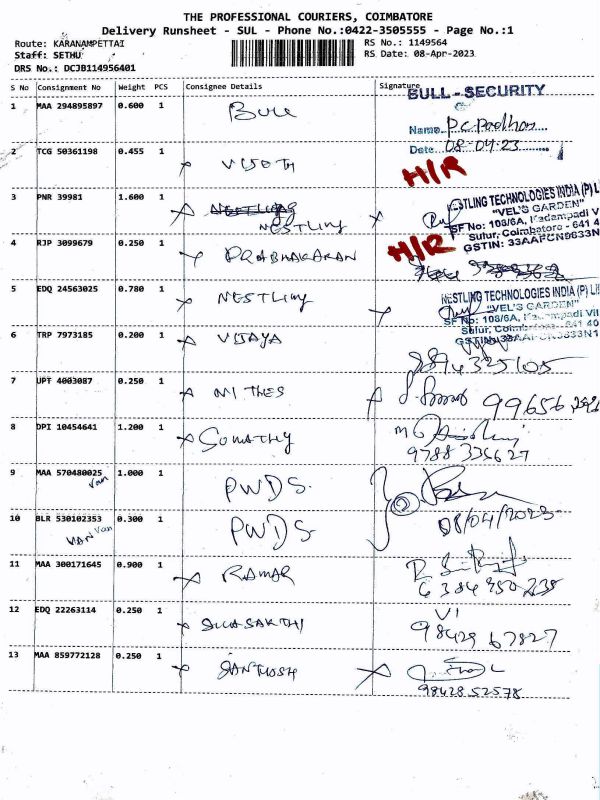 THE PROFESSIONAL COURIERS, COIMBATORE
Delivery Runsheet - SUL - Phone No.:0422-3505555 - Page No.:1
Route: KARANAMPETTAI
RS No.: 1149564
Staff: SETHU
RS Date: 08-Apr-2023
DRS No.: DCJB114956401
S No Consignment No Weight PCS Consignee Details Signature
BULL - SECURITY
1 MAA 294895897 0.600 1 BULL
Name P.C. Pradhan
Date 08-04-23
2 TCG 50361198 0.455 1 VIJOTH
H/R
3 PNR 39981 1.600 1 NESTLING
NESTLING TECHNOLOGIES INDIA (P) LI
"VEL'S GARDEN"
SF No: 108/6A, Kadampadi Vi
Sulur, Coimbatore - 641 4
GSTIN: 33AAFCN9633N
4 RJP 3099679 0.250 1 PRABHAKARAN
H/R
5 EDQ 24563025 0.780 1 NESTLING
NESTLING TECHNOLOGIES INDIA (P) LI
"VEL'S GARDEN"
SF No: 108/6A, Kadampadi Vil
Sulur, Coimbatore - 641 40
6 TRP 7973185 0.200 1 VIJAYA
9894325105
7 UPT 4003087 0.250 1 NITHES
99656
8 DPI 10454641 1.200 1 SUMATHY
9788 335627
9 MAA 570480025 1.000 1 PWDS
Van
10 BLR 530102353 0.300 1 PWDS
VAN Van
08/04/2023
11 MAA 300171645 0.900 1 RAMAR
6384350235
12 EDQ 22263114 0.250 1 SIVASAKTHI
VI
98429 67827
13 MAA 859772128 0.250 1 SANTHOSH
98428 52578